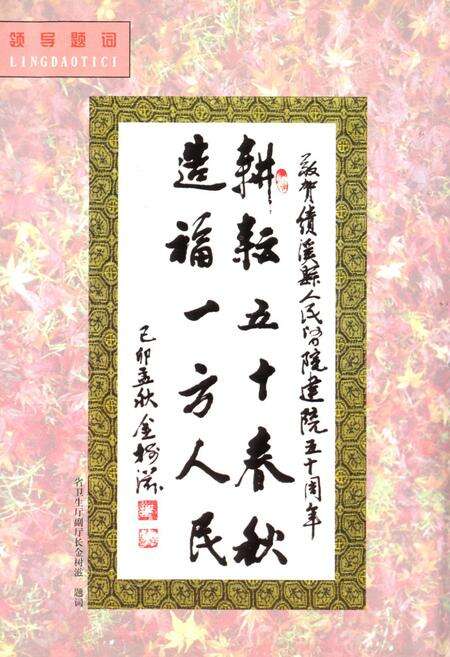 领导题词
LINGDAOTICI
敬贺绩溪縣人民医院建院五十周年
耕耘五十春秋
造福一方人民
己卯孟秋金树滋
省卫生厅副厅长金树滋 题词